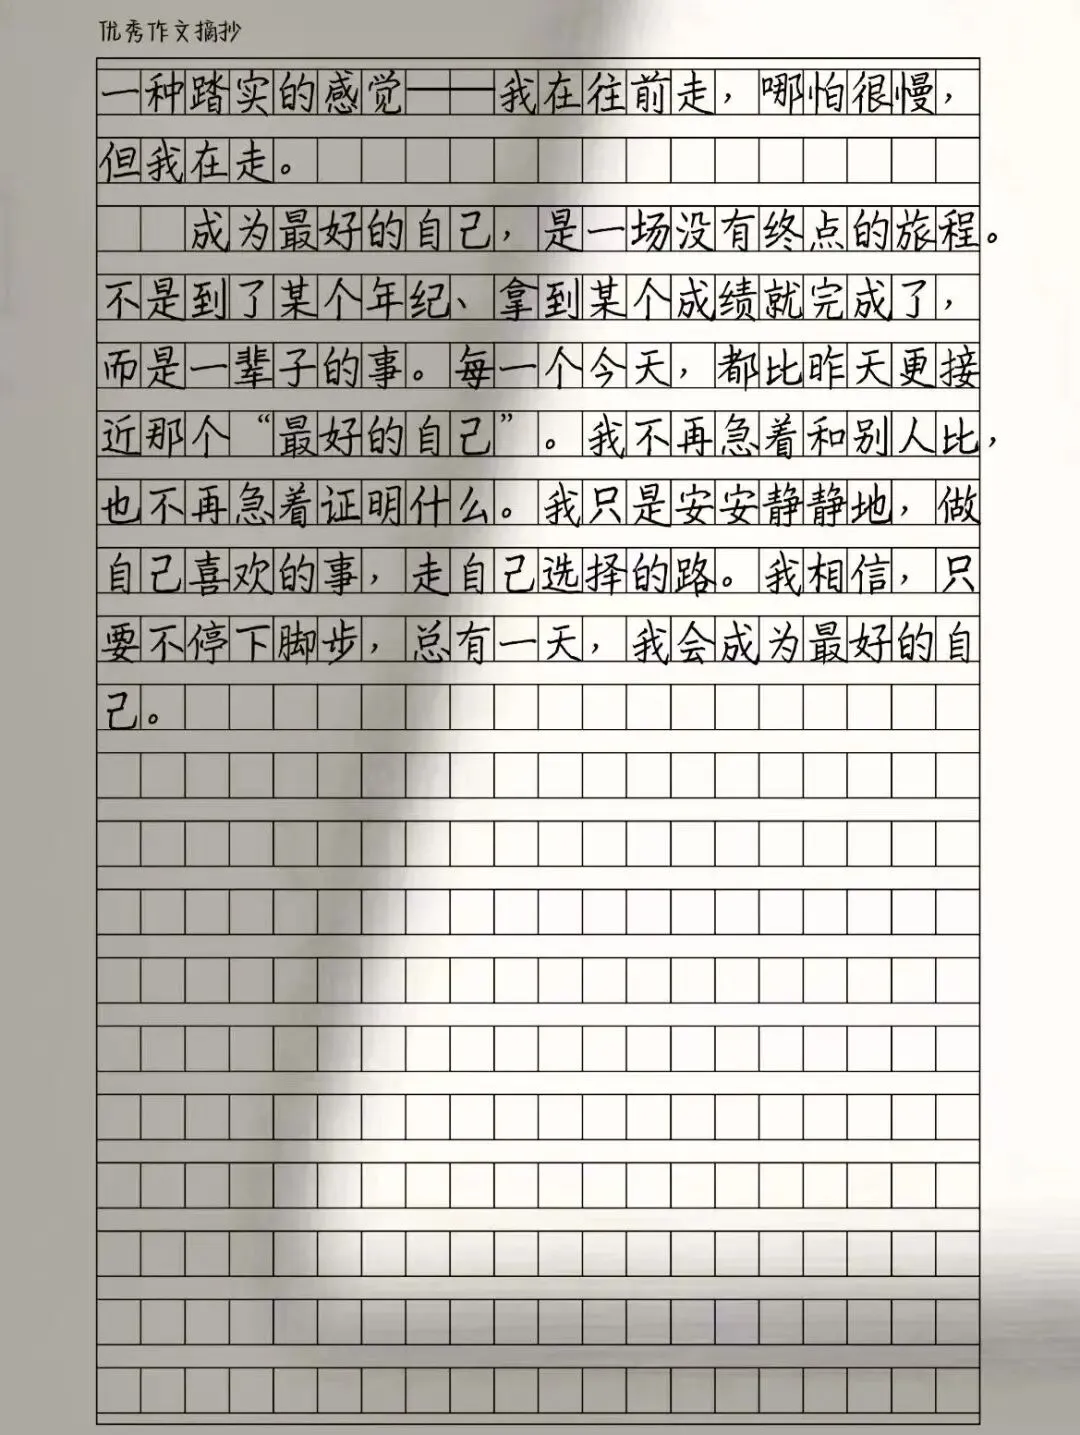 优秀作文摘抄
一种踏实的感觉——我在往前走，哪怕很慢，
但我在走。
成为最好的自己，是一场没有终点的旅程。
不是到了某个年纪、拿到某个成绩就完成了，
而是一辈子的事。每一个今天，都比昨天更接
近那个“最好的自己”。我不再急着和别人比，
也不再急着证明什么。我只是安安静静地，做
自己喜欢的事，走自己选择的路。我相信，只
要不停下脚步，总有一天，我会成为最好的自
己。